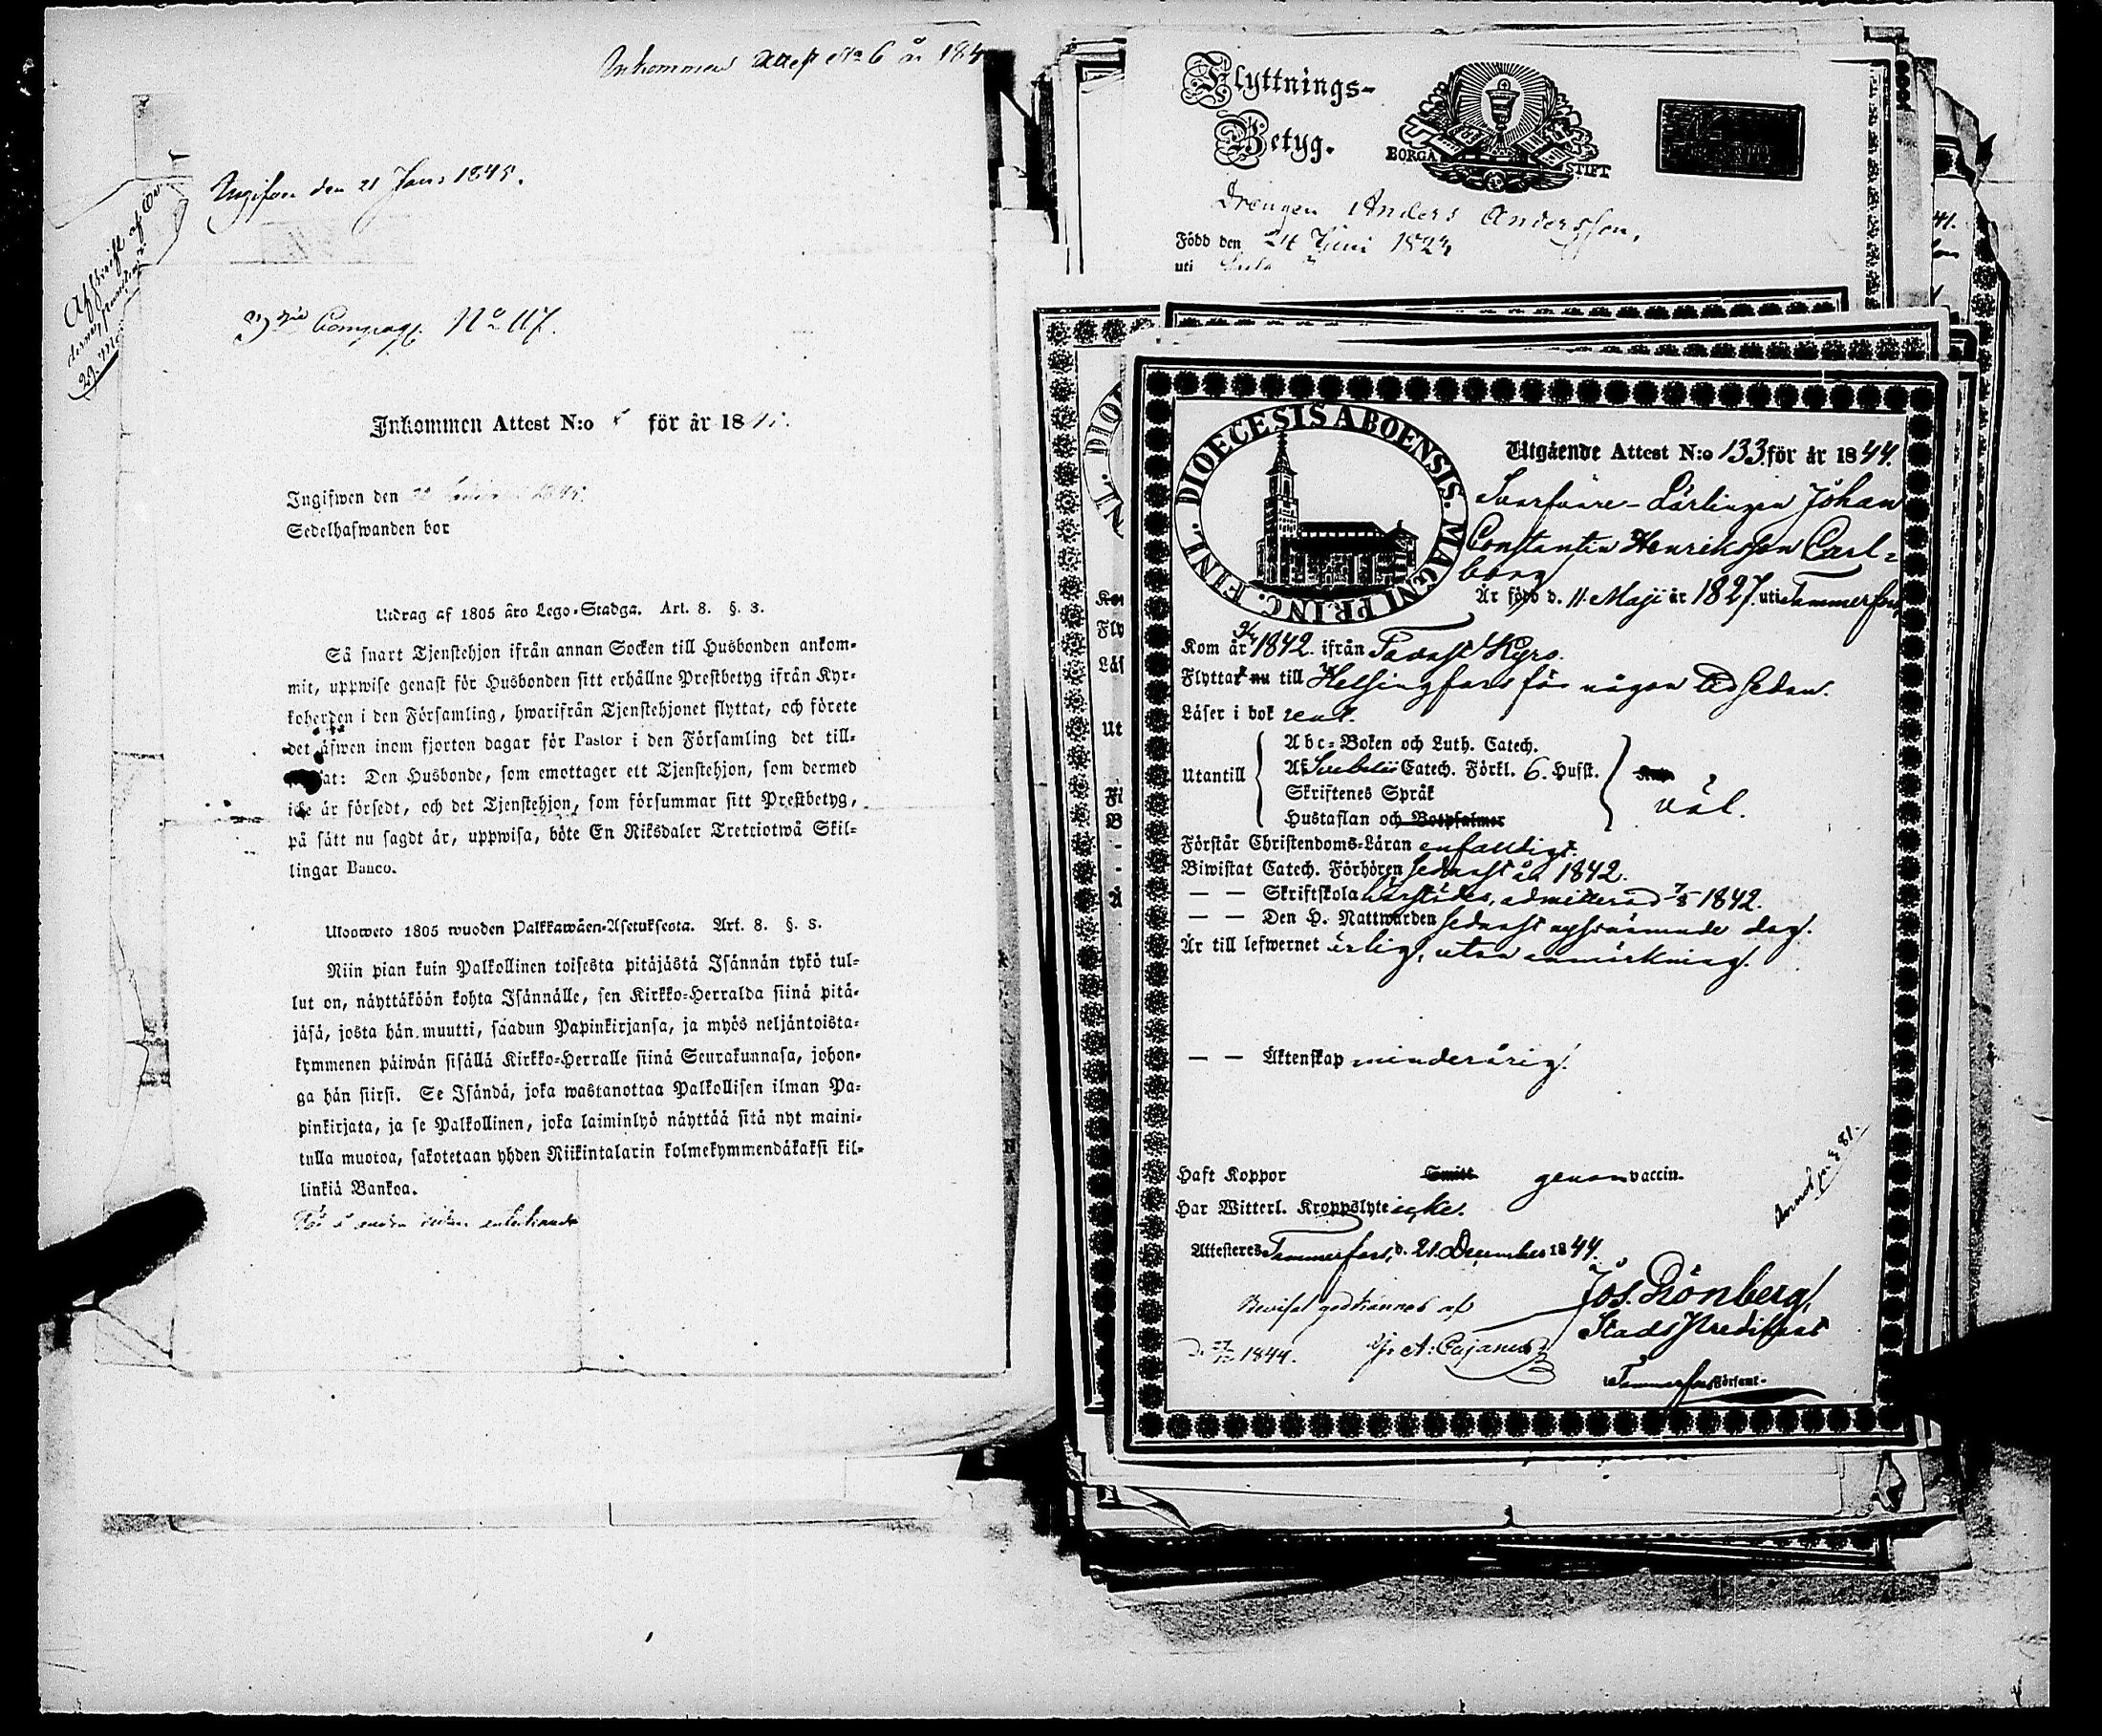 Inkommen Attest No 6 år 184
Ingifven den 21 Janu 1845.
Afskrift af
No 117.
Inkommen Attest N:o för år 18
Ingifwen den
Sedelhafwanden bor
Utdrag af 1805 års Lego-Stadga. Art. 8. §. 3.
Så snart Tjenstehjon ifrån annan Socken till Husbonden ankom-
mit, uppwise genast för Husbonden sitt erhållne Prestbetyg ifrån Kyr-
koherden i den Församling, hwarifrån Tjenstehjonet flyttat, och förete
det äfwen inom fjorton dagar för Pastor i den Församling det till-
at: Den Husbonde, som emottager ett Tjenstehjon, som dermed
icke är försedt, och det Tjenstehjon, som försummar sitt Prestbetyg,
på sätt nu sagdt är, uppwisa, böte En Riksdaler Trettiotwå Skil-
lingar Banco.
Ulosweto 1805 wuoden Palkkawäen-Asetuksesta. Art. 8. §. 3.
Niin pian kuin Palkollinen toisesta pitäjästä Isännän tykö tul-
lut on, näyttäköön kohta Isännälle, sen Kirkko-Herralda siinä pitä-
jäsä, josta hän muutti, saadun Papinkirjansa, ja myös neljäntoista-
kymmenen päiwän sisällä Kirkko-Herralle siinä Seurakunnasa, johon-
ga hän siirsi. Se Isändä, joka wastanottaa Palkollisen ilman Pa-
pinkirjata, ja se Palkollinen, joka laiminlyö näyttää sitä nyt maini-
tulla muotoa, sakotetaan yhden Riikintalarin kolmekymmendäkaksi kil-
linkiä Bankoa.
Flyttnings-
Betyg.
BORGÅ STIFT
Drängen Anders Andersson,
Född den 24 Juni 1824
uti
DIOECESIS ABOENSIS. MAGNI PRINC. FINL.
Utgående Attest N:o 133. för år 1844.
Svarfvare-Lärlingen Johan
Constantin Henriksson Carl-
borg
Är född d. 11 Maji år 1827. uti Tammerfors
Kom år 1842. ifrån Tavast Kyro.
Flyttat nu till Helsingfors för någon tid sedan.
Läser i bok rent.
Utantill
Abc-Boken och Luth. Catech.
Svebelii Catech. Förkl. 6. Husst.
Skriftenes Språk
Hustaflan och Botpsalmer
väl.
Förstår Christendoms-Läran enfaldigt.
Biwistat Catech. Förhören sednast år 1842.
— — Skriftskola härstädes, admitterad 7/8 1842.
— — Den H. Nattwarden sednast nyssnämnde dag.
Är till lefwernet ärlig, utan anmärkning.
— — Äktenskap minderårig.
Haft Koppor genom vaccin.
Har Witterl. Kroppslyte icke.
Attesteres Tammerfors, d. 21. December 1844.
Jos. Grönberg,
Stads Predikant
i Tammerfors Församl.
Beviset godkännes af
1844. A: Cajanus